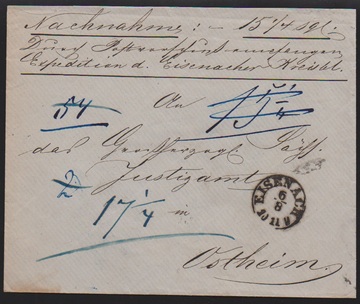 Nachnahme: – 15 1/4 sgl.
Durch Postvorschuß
Expedition d. Eisenacher Kreisbl.
54
An
das Großherzogl. Sächs.
Justizamt
2
17 1/4
in
EISENACH
6
8
10 11 V
Ostheim.